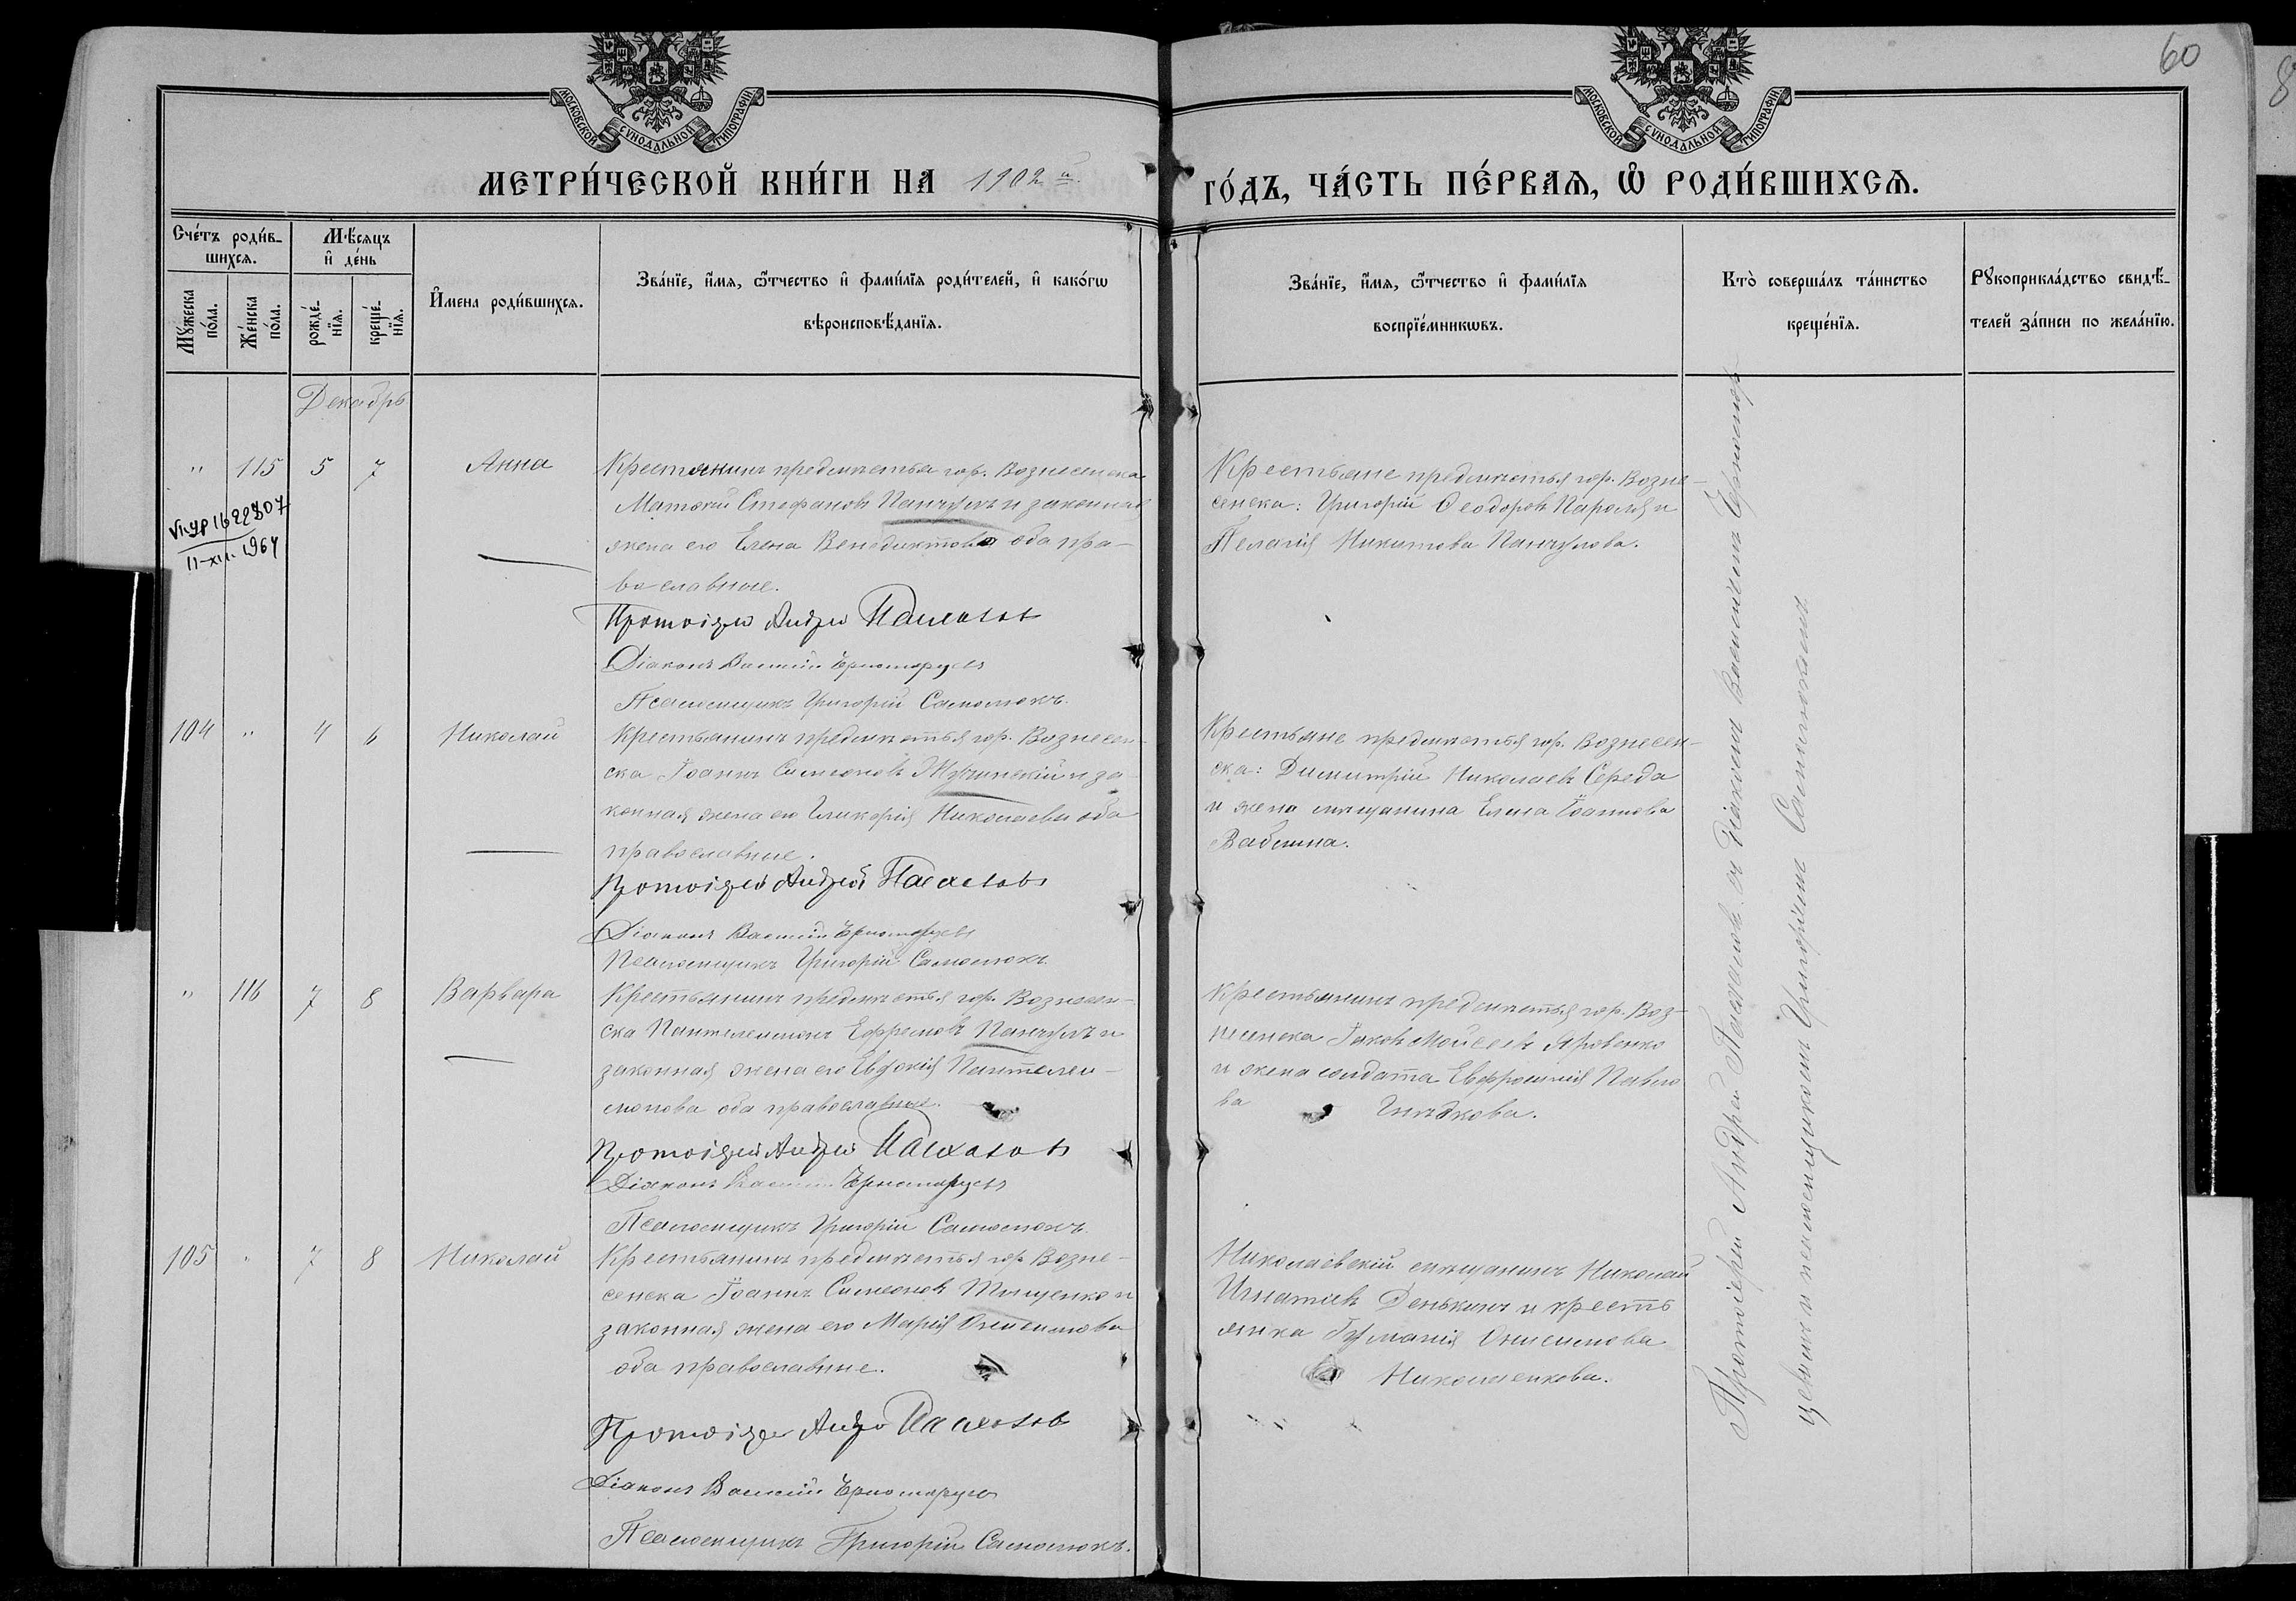 60
МОСКОВСКОЙ СѴНОДАЛЬНОЙ ТИПОГРАФІИ
МОСКОВСКОЙ СѴНОДАЛЬНОЙ ТИПОГРАФІИ
МЕТРИ́ЧЕСКОЙ КНИ́ГИ НА 1902 й
ГО́ДЪ, ЧА́СТЬ ПЕ́РВАЯ, Ѽ РОДИ́ВШИХСЯ.
Сче́тъ роди́в-
шихся.
Мꙋ́жеска по́ла.
Же́нска по́ла.
Мѣ́сяцъ
и҆ де́нь
рожде́-
нїя.
креще́-
нїя.
И҆мена роди́вшихся.
Зва́нїе, и҆́мя, ѻ҆́тчество и҆ фами́лїя роди́телей, и҆ како́гѡ
вѣроисповѣ́данїя.
Зва́нїе, и҆́мя, ѻ҆́тчество и҆ фами́лїя
воспрїе́мникѡвъ.
Кто̀ соверша́лъ та́инство
креще́нїя.
Рꙋкоприкла́дство свидѣ́-
телей за́писи по жела́нїю.
Декабрь
" 115 5 7 Анна
Крестьянинъ предмѣстья гор. Вознесенска
Матѳій Стефановъ Панчулъ и законная
жена его Елена Венедиктова оба пра-
вославные.
Протоіерей Андрей Пасхаловъ
Діаконъ Василій
Псаломщикъ Григорій Самотокъ.
Крестьяне предмѣстья гор. Возне-
сенска: Григорій Ѳеодоровъ Пароля и
Пелагія Никитова Панчулова.
1622807
11-XII-1964
104 " 4 6 Николай
Крестьянинъ предмѣстья гор. Вознесен-
ска Іоаннъ Симеоновъ и за-
конная жена его Гликерія Николаева оба
православные.
Протоіерей Андрей Пасхаловъ
Діаконъ Василій
Псаломщикъ Григорій Самотокъ.
Крестьяне предмѣстья гор. Вознесен-
ска: Димитрій Николаевъ Середа
и жена мѣщанина Елена Іоаннова
" 116 7 8 Варвара
Крестьянинъ предмѣстья гор. Вознесен-
ска Пантелеимонъ Ефремовъ Панчулъ и
законная жена его Евдокія Пантелеи-
монова оба православные.
Протоіерей Андрей Пасхаловъ
Діаконъ Василій
Псаломщикъ Григорій Самотокъ.
Крестьянинъ предмѣстья гор. Воз-
несенска Іаковъ Моисеевъ Яровенко
и жена солдата Евфросинія Павло
ва Гнѣдкова.
105 " 7 8 Николай
Крестьянинъ предмѣстья гор. Возне-
сенска Іоаннъ Симеоновъ Тищенко и
законная жена его Марія
оба православные.
Протоіерей Андрей Пасхаловъ
Діаконъ Василій
Псаломщикъ Григорій Самотокъ.
Николаевскій мѣщанинъ Николай
Игнатіевъ Денькинъ и кресть
янка Іуліанія Онисимова
Николаенкова.
Протоіерей Андрей Пасхаловъ съ Діакономъ Василіемъ
и псаломщикомъ Григоріемъ Самотокомъ.